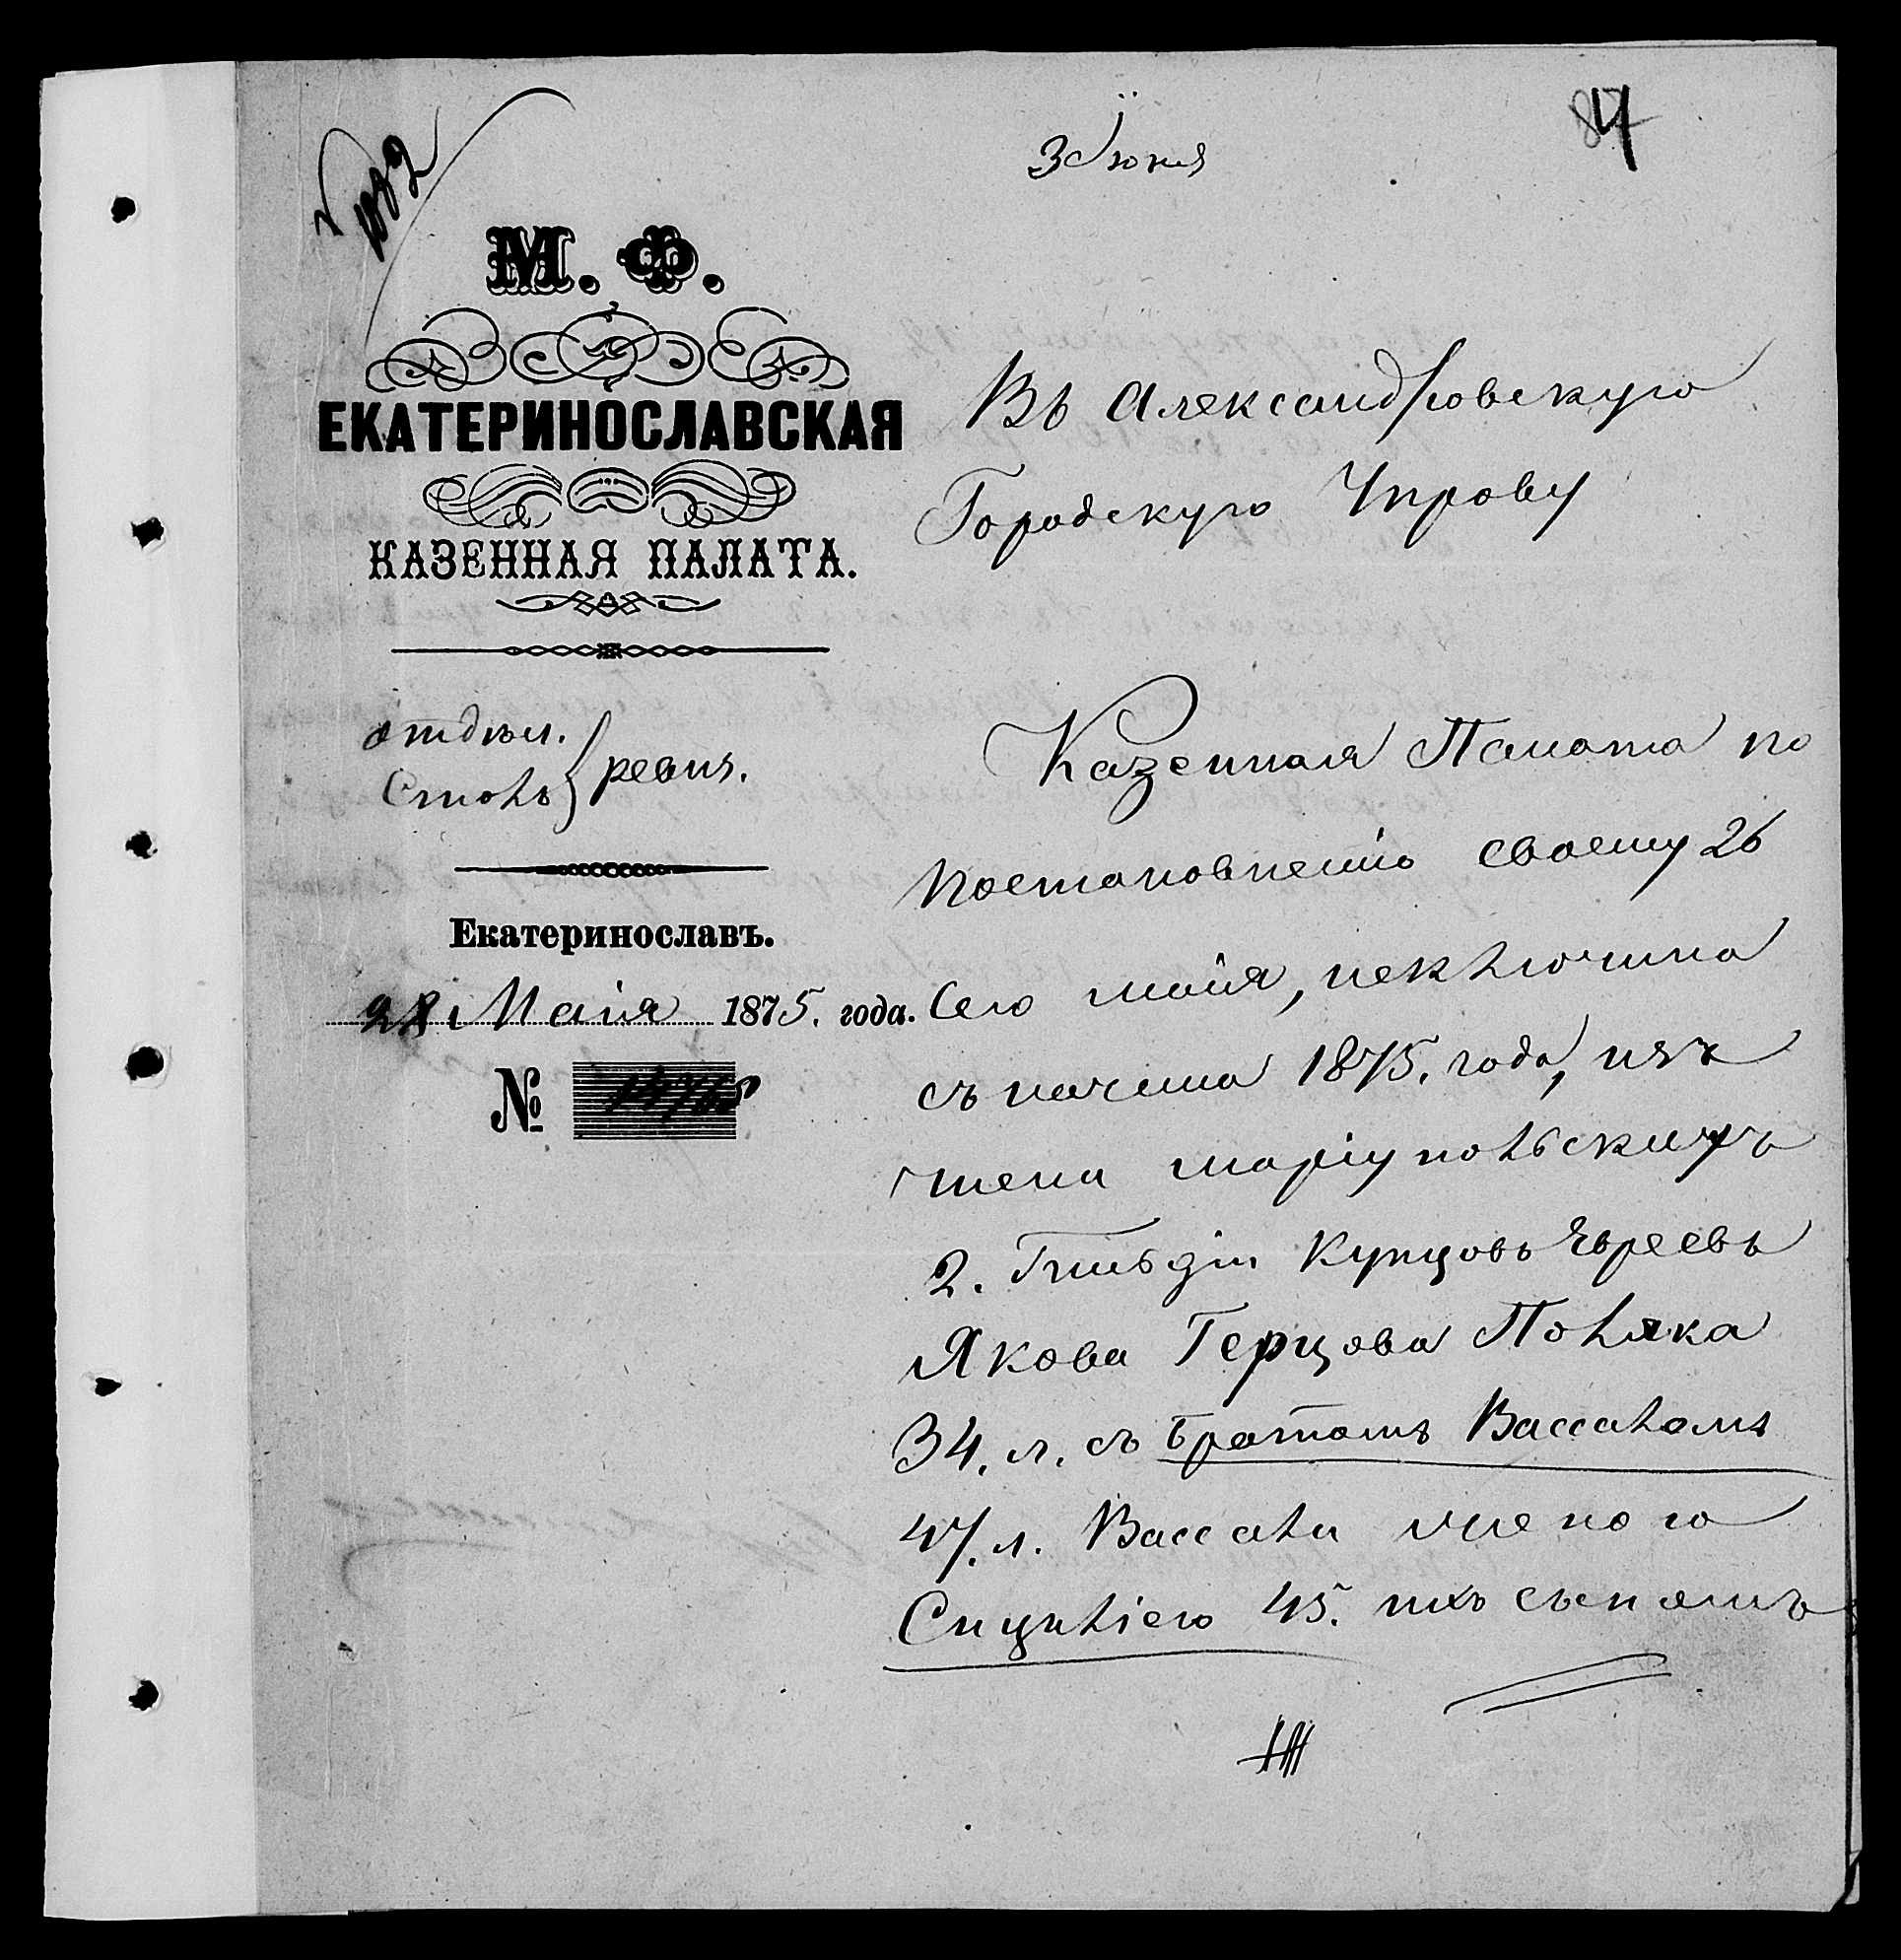 84
3 Іюня
№ 1082
М. Ф.
ЕКАТЕРИНОСЛАВСКАЯ
КАЗЕННАЯ ПАЛАТА.
отдѣл.
Столъ } ревиз.
Екатеринославъ.
28 Маія 1875. года.
№
Въ Александровскую
Городскую Управу
Казенная Палата по
постановленію своему 26
сего маія, исключила
съ начала 1875. года, изъ
члена маріупольскихъ
2. Гильдіи Купцовъ Евреевъ
Якова Герцова Поляка
34. л. съ братомъ Вассаломъ
47. л. Вассали женою
45. ихъ сыномъ